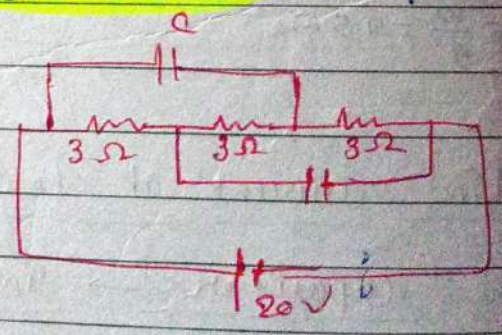 C
3Ω 3Ω 3Ω
20 V